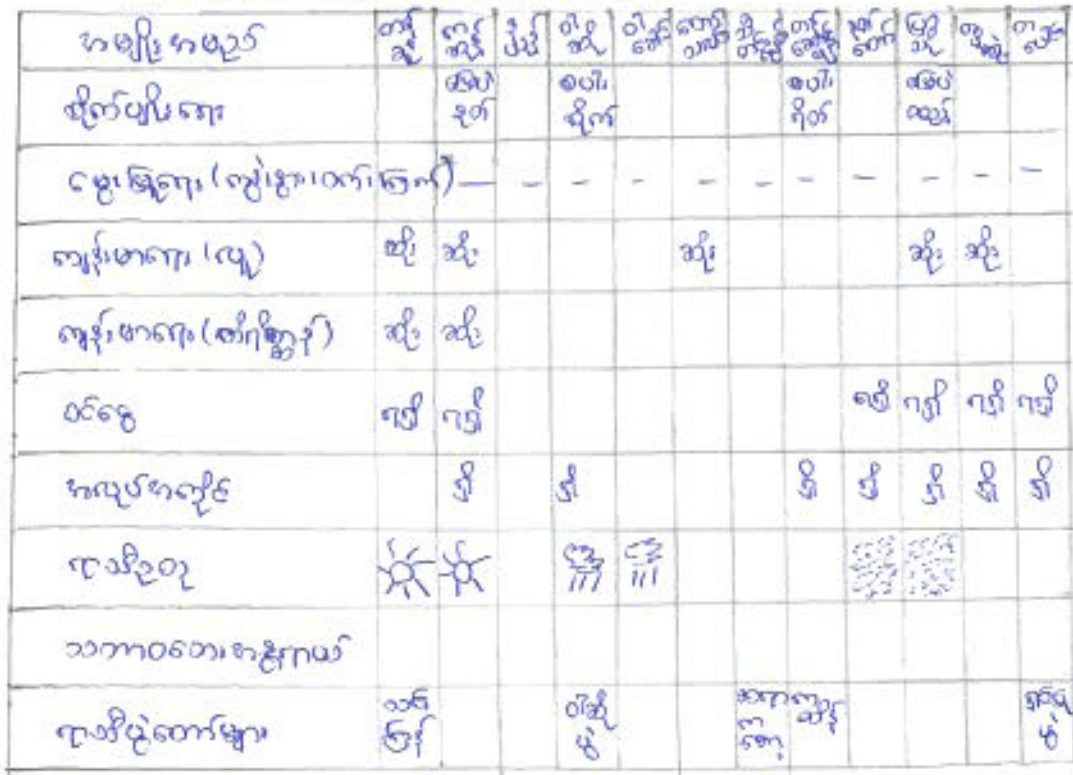 အမျိုးအမည် တန်ခူး ကဆုန် နယုန် ဝါဆို ဝါခေါင် တော်သလင်း သီတင်းကျွတ် တန်ဆောင်မုန်း နတ်တော် ပြာသို တပို့တွဲ တပေါင်း
စိုက်ပျိုးရေး မြေပဲနုတ် စပါးစိုက် စပါးရိတ် မြေပဲ
မွေးမြူရေး (ကျွဲ၊နွား၊ဝက်၊ကြက်) — - - - - - - - - - -
ကျန်းမာရေး (လူ) ဆိုး ဆိုး ဆိုး ဆိုး ဆိုး
ကျန်းမာရေး (တိရိစ္ဆာန်) ဆိုး ဆိုး
ဝင်ငွေ ရရှိ ရရှိ ရရှိ ရရှိ ရရှိ ရရှိ
အလုပ်အကိုင် ရှိ ရှိ ရှိ ရှိ ရှိ ရှိ ရှိ
ရာသီဥတု
သဘာဝဘေးအန္တရာယ်
ရာသီပွဲတော်များ သင်္ကြန် ဝါဆိုပွဲ ဆရာကန်တော့ ကထိန်